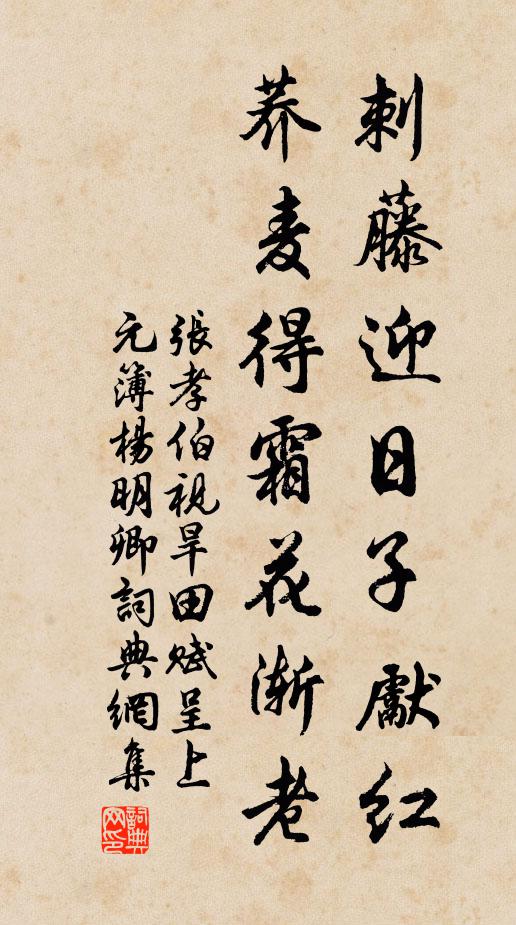 刺藤迎日子獻紅
荞麦得霜花渐老
張孝伯視旱田赋呈上
元簿楊明卿詞典網集
詞典
网印